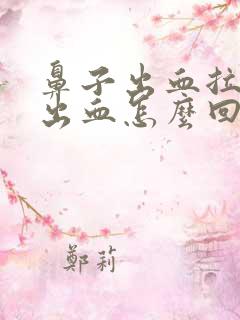 鼻子出血拉
出血怎麼回
鄭莉